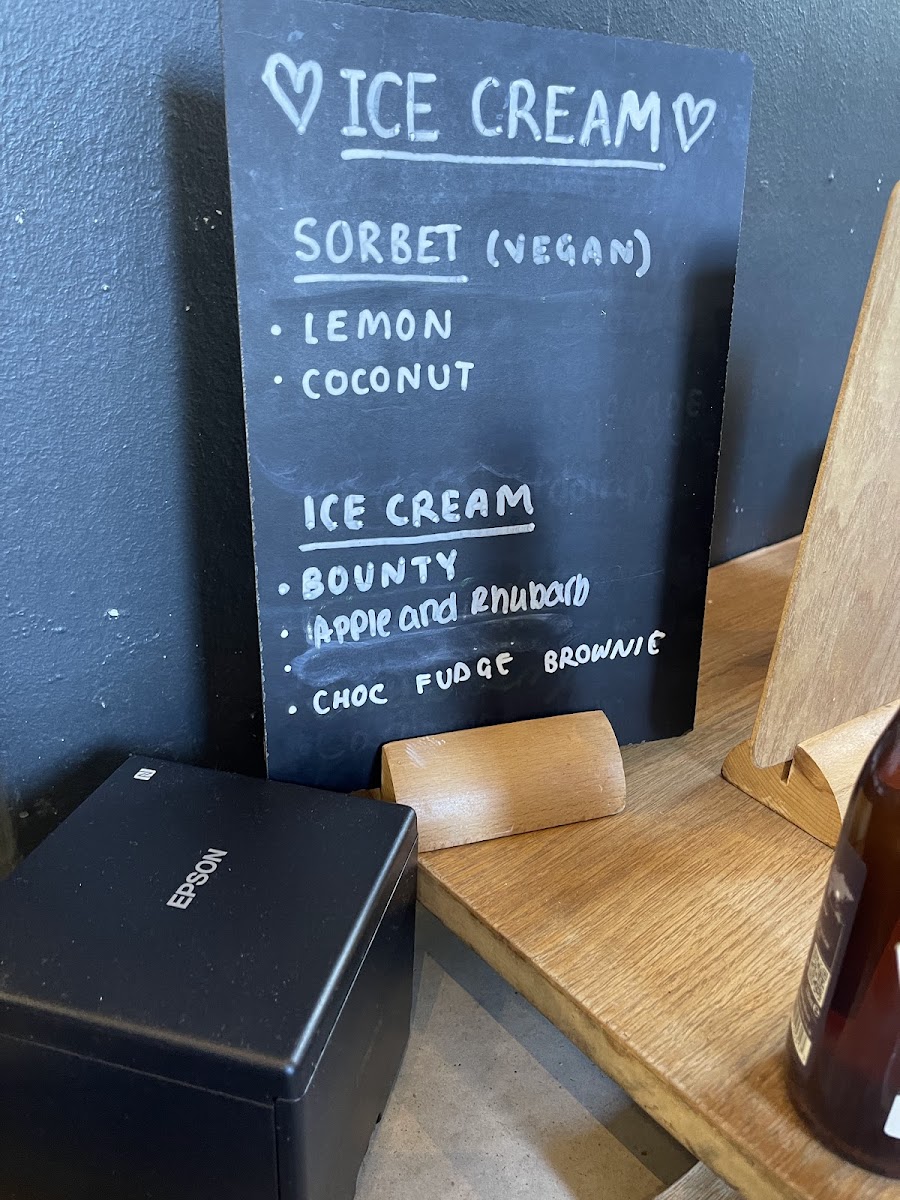 ♡ ICE CREAM ♡
SORBET (VEGAN)
• LEMON
• COCONUT
ICE CREAM
• BOUNTY
• Apple and Rhubarb
•
• CHOC FUDGE BROWNIE
EPSON